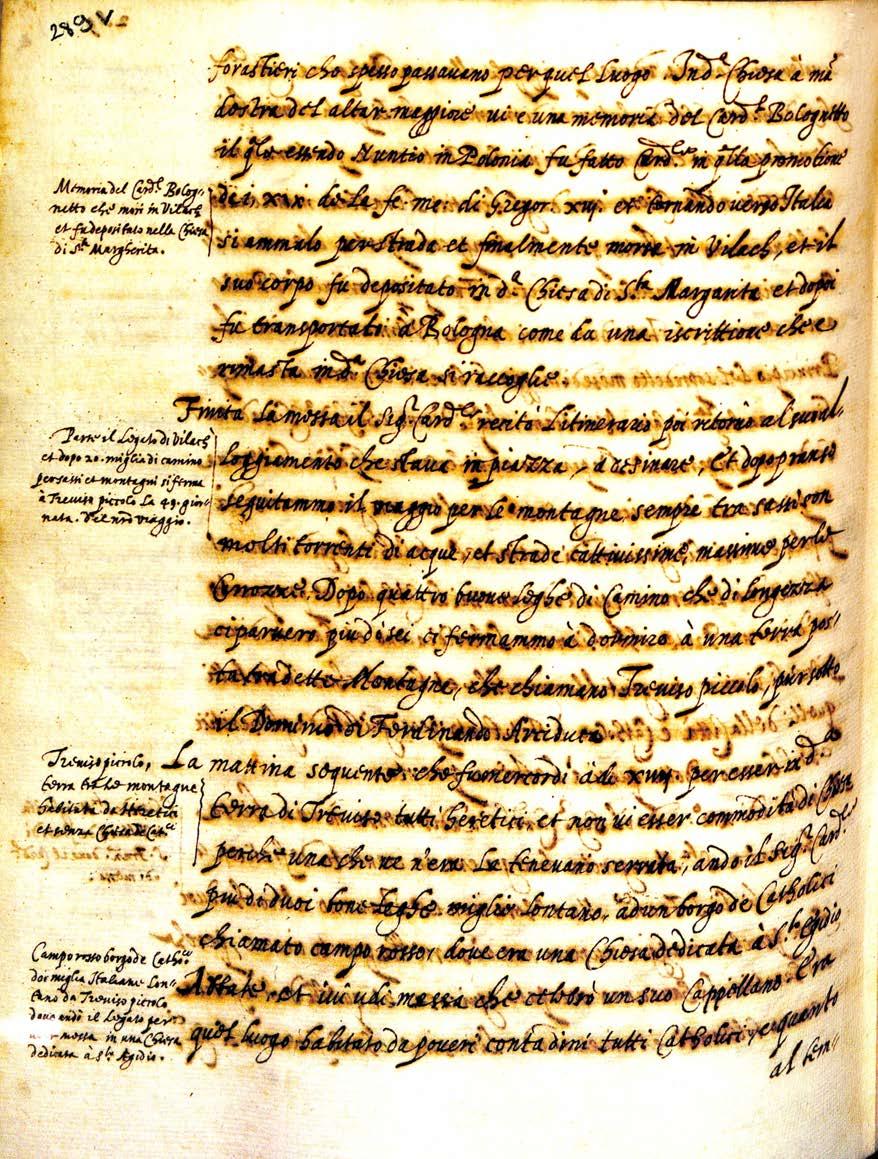 289 v
forastieri che spesso passavano per quel luogo. In d.ª Chiesa à mã
destra del altar maggiore vi e una memoria del Card.le Bolognetto
il q̃le essendo Nuntio in Polonia fu fatto Card.le in q̃lla promotione
dei xix de la fe: me: di Gregor. xiij. et tornando verso Italia
si ammalo per strada et finalmente morse in Vilach, et il
suo corpo fu depositato in d.ª Chiesa di S.ta Margarita et dopoi
fu transportato à Bologna come da una iscrittione che e
rimasta in d.ª Chiesa si raccoglie.
Memoria del Card.le Bolog-
netto che morì in Vilach
et fu depositato nella Chiesa
di S.ta Margherita.
Finita la messa il Sig.r Card.le recitò l'itinerario poi ritornò al suo al-
loggiamento che stava in piazza, a desinare, Et dopo pranso
seguitammo il viaggio per le montagne, sempre tra sassi con
molti torrenti di acque, et strade cattivissime, massime per le
Carrozze. Dopo quattro buone leghe di Camino che di longezza
ci parvero piu di sei ci fermammo à dormire à una terra pos-
ta tra dette Montagne, che chiamano Treviso piccolo, pur sotto
il Dominio di Ferdinando Arciduca
Parte il Legato di Vilach
et dopo 20. miglia di camino
per sassi et montagni si ferma
à Treviso piccolo la 49. gior-
nata. del nrõ viaggio.
La mattina sequente, che fu mercordi à di xviij. per esser in d.ª
terra di Treviso tutti heretici, et non vi esser commodita di Chiese
perche una che ve n'era la tenevano serrata, andò il Sig.r Card.le
piu di duoi bone leghe miglia lontano, ad un borgo de Catholici
chiamato campo rosso, dove era una Chiesa dedicata à S.to Egidio
Abbate, et ivi udi messa che celebrò un suo Cappellano. Era
quel luogo habitato da poveri contadini tutti Catholici, e quanto
al tem-
Treviso piccolo,
terra tra le montagne
habitata da Heretici
et senza Chiesa de Cat.ci
Campo rosso borgo de Catho.ci
doi miglia Italiane lon-
tano da Treviso piccolo
dove andò il Legato per
messa in una Chiesa
dedicata à S.to Egidio.